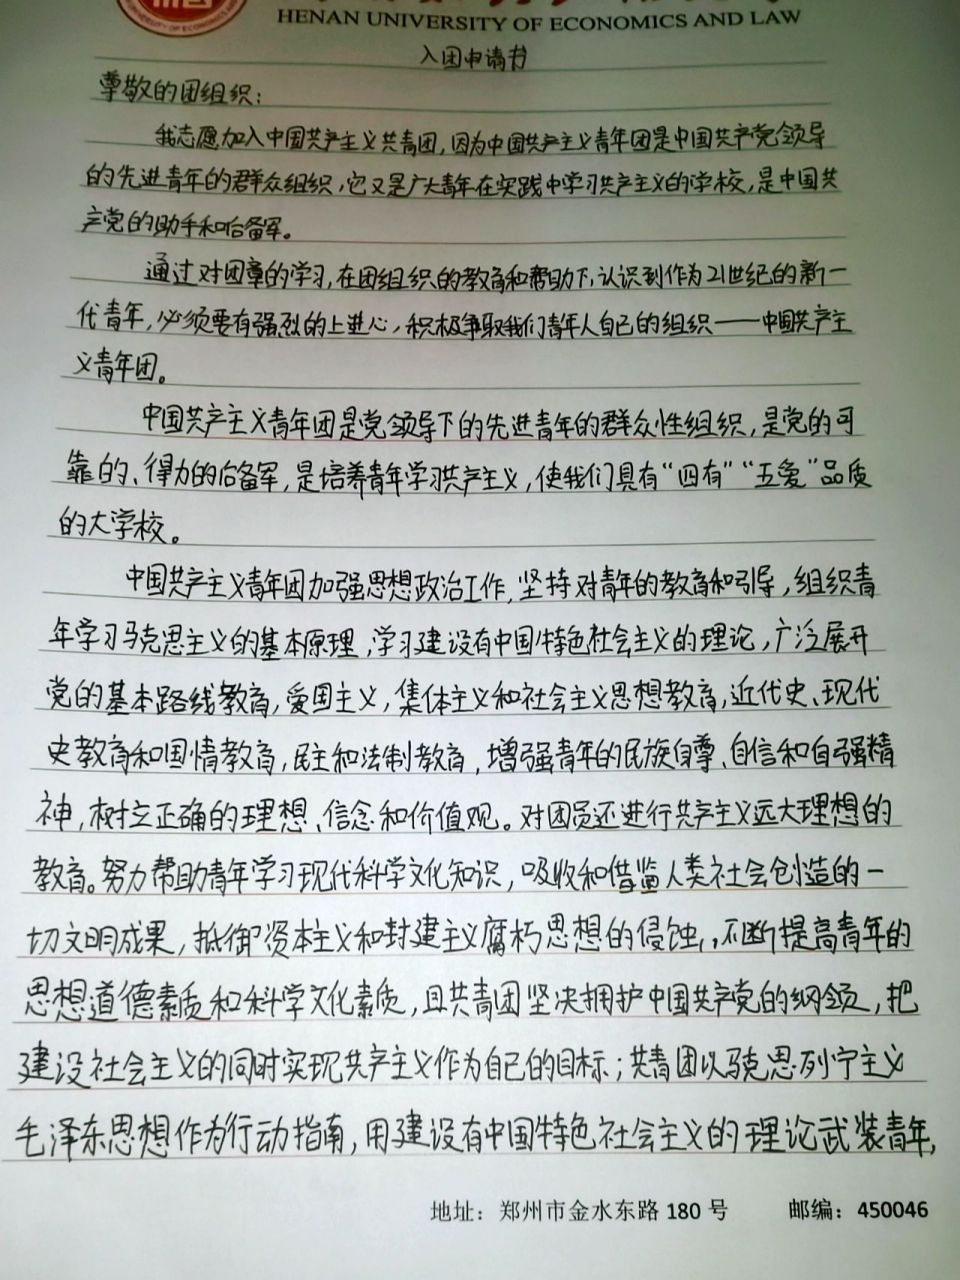 HENAN UNIVERSITY OF ECONOMICS AND LAW
入团申请书
尊敬的团组织：
我志愿加入中国共产主义共青团，因为中国共产主义青年团是中国共产党领导
的先进青年的群众组织，它又是广大青年在实践中学习共产主义的学校，是中国共
产党的助手和后备军。
通过对团章的学习，在团组织的教育和帮助下，认识到作为21世纪的新一
代青年，必须要有强烈的上进心，积极争取我们青年人自己的组织——中国共产主
义青年团。
中国共产主义青年团是党领导下的先进青年的群众性组织，是党的可
靠的、得力的后备军，是培养青年学习共产主义，使我们具有“四有”“五爱”品质
的大学校。
中国共产主义青年团加强思想政治工作，坚持对青年的教育和引导，组织青
年学习马克思主义的基本原理，学习建设有中国特色社会主义的理论，广泛展开
党的基本路线教育，爱国主义，集体主义和社会主义思想教育，近代史、现代
史教育和国情教育，民主和法制教育，增强青年的民族自尊、自信和自强精
神，树立正确的理想、信念和价值观。对团员还进行共产主义远大理想的
教育。努力帮助青年学习现代科学文化知识，吸收和借鉴人类社会创造的一
切文明成果，抵御资本主义和封建主义腐朽思想的侵蚀，，不断提高青年的
思想道德素质和科学文化素质，且共青团坚决拥护中国共产党的纲领，把
建设社会主义的同时实现共产主义作为自己的目标；共青团以马克思列宁主义
毛泽东思想作为行动指南，用建设有中国特色社会主义的理论武装青年，
地址：郑州市金水东路180号 邮编：450046